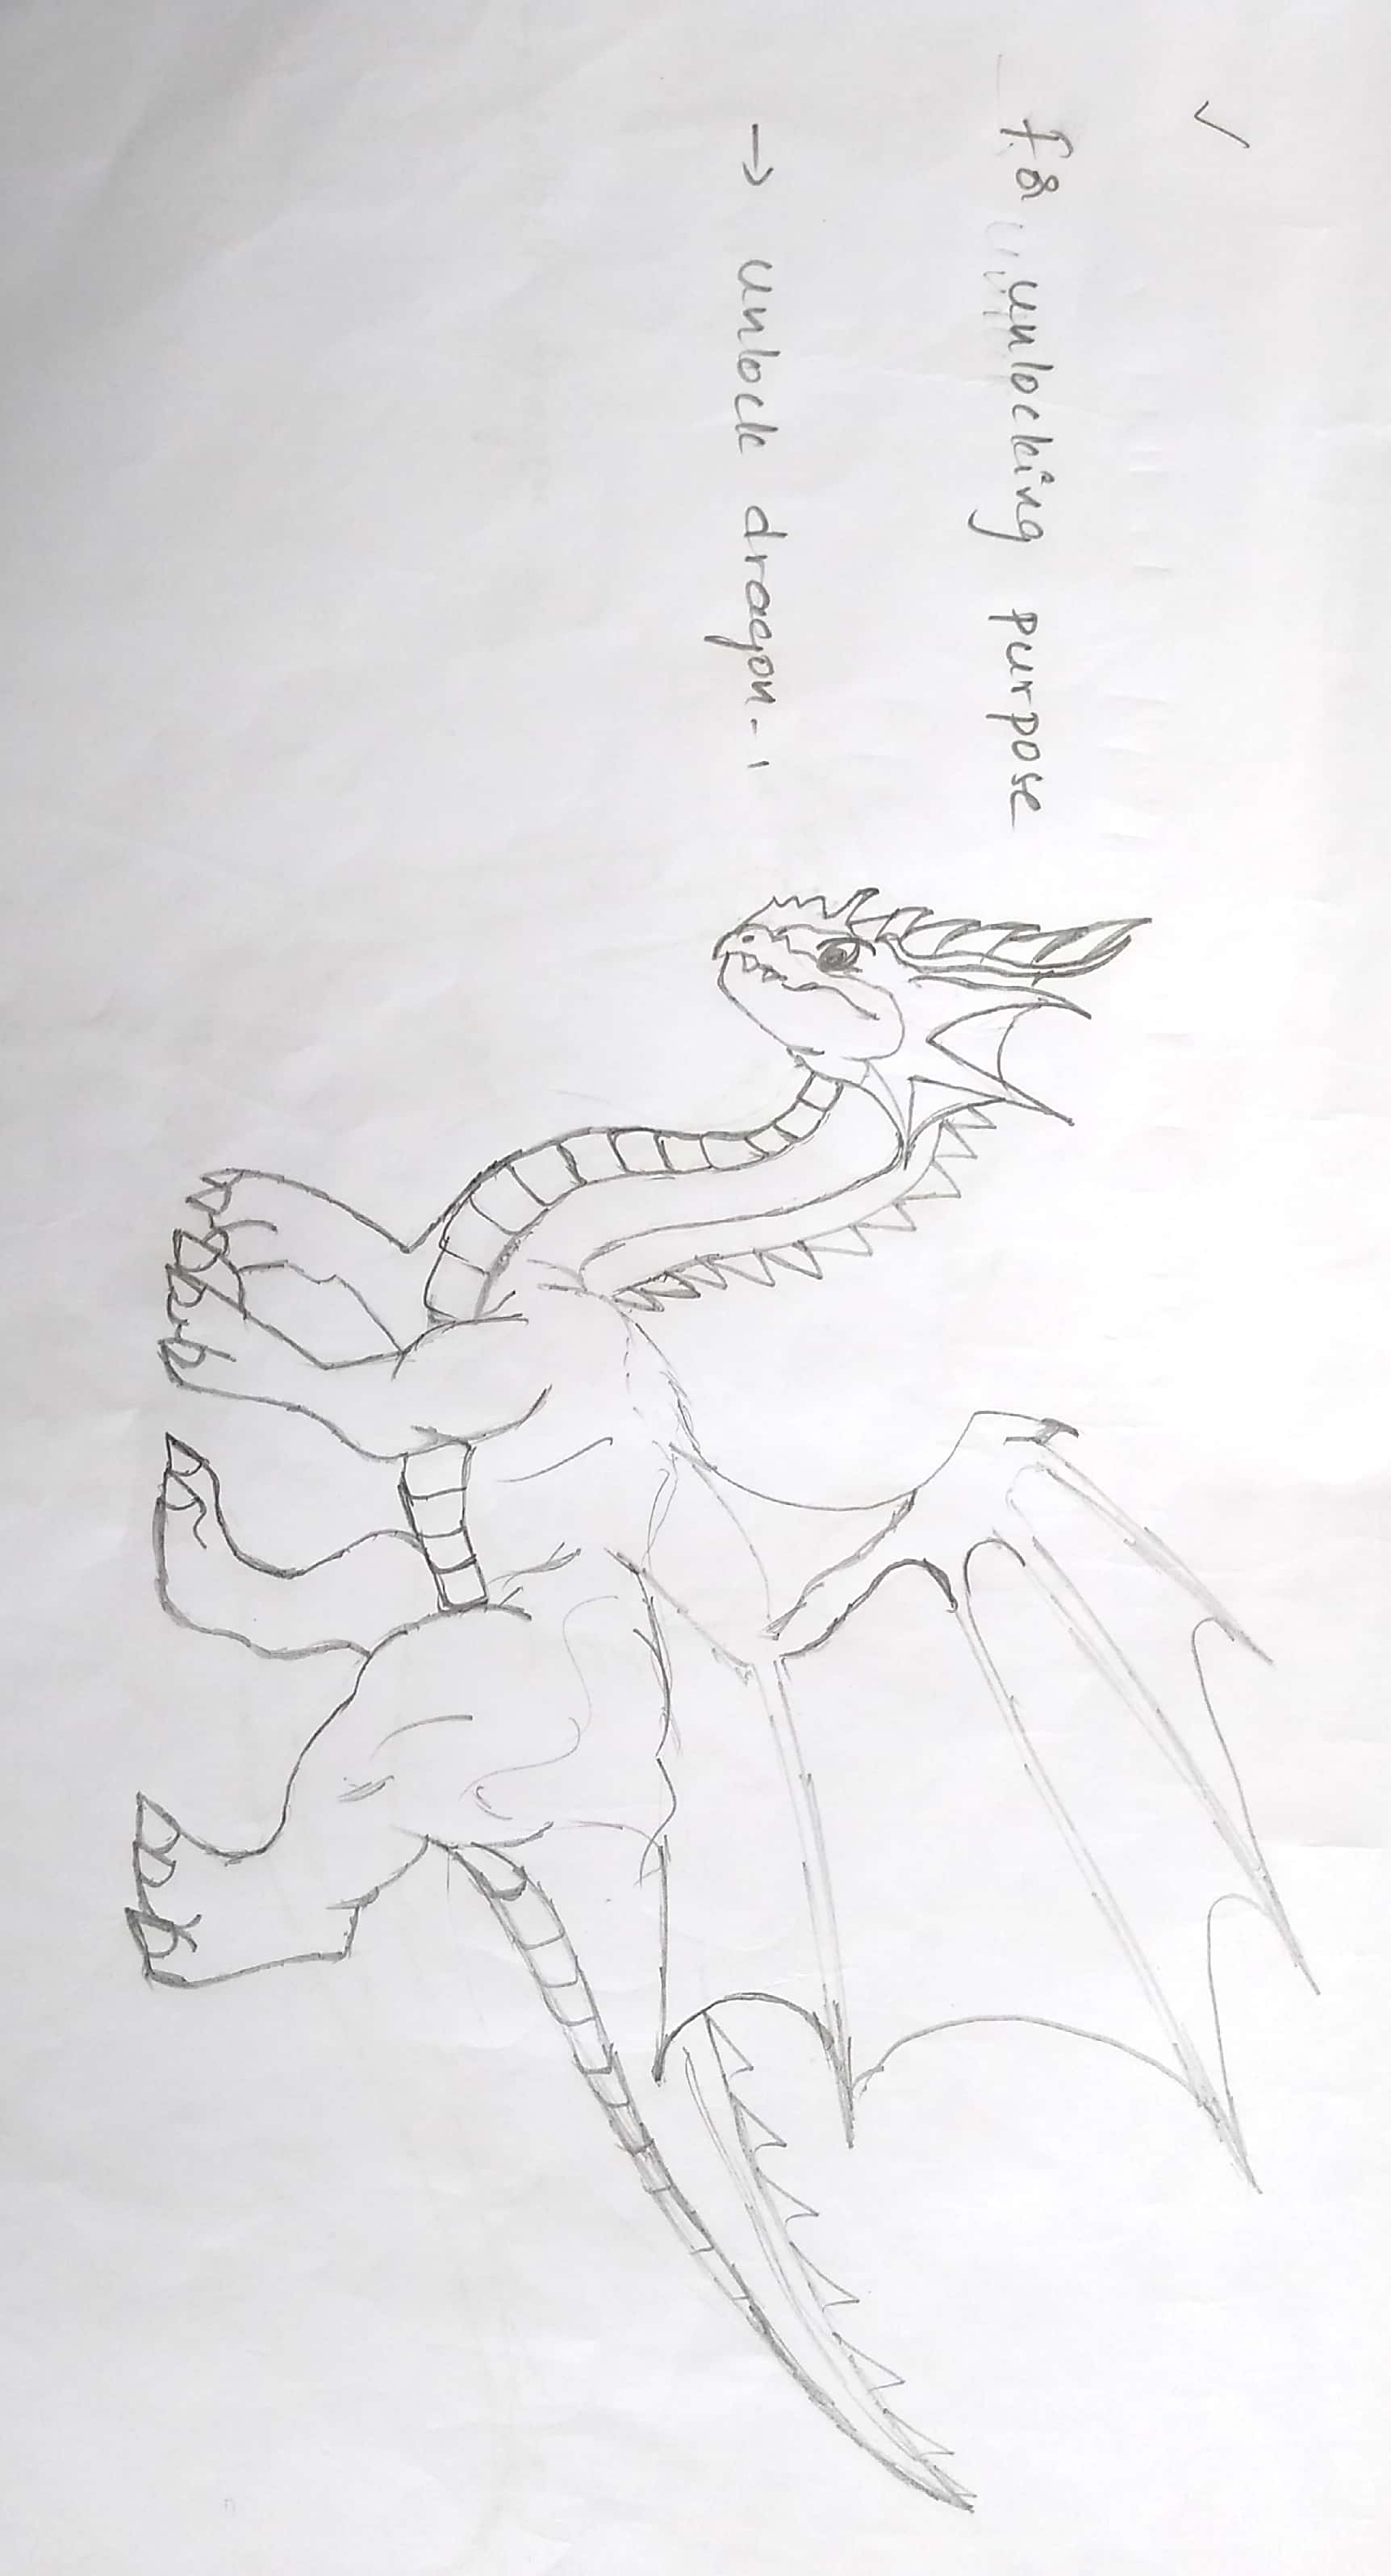 for unlocking purpose
→ unlock dragon..